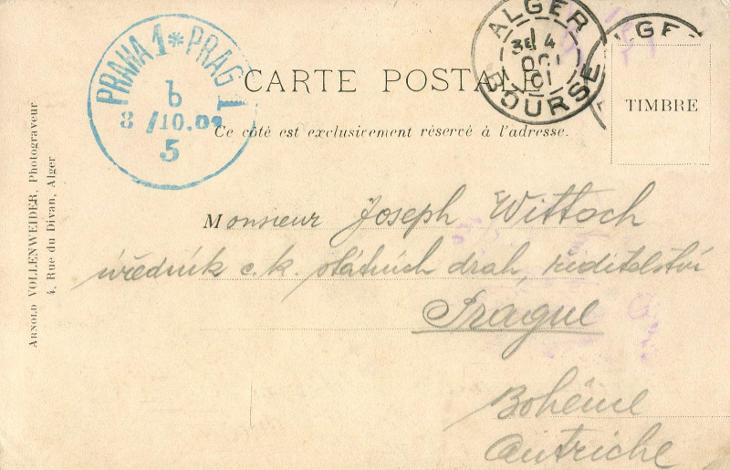 PRAHA 1 * PRAG 1
b
8 /10.01
5
ALGER
3E 4
OCT
01
BOURSE
CARTE POSTALE
TIMBRE
Ce côté est exclusivement réservé à l'adresse.
ARNOLD VOLLENWEIDER, Photograveur
4, Rue du Divan, Alger
Monsieur Joseph Wittoch
úředník c. k. státních drah, ředitelství
Prague
Bohême
Autriche